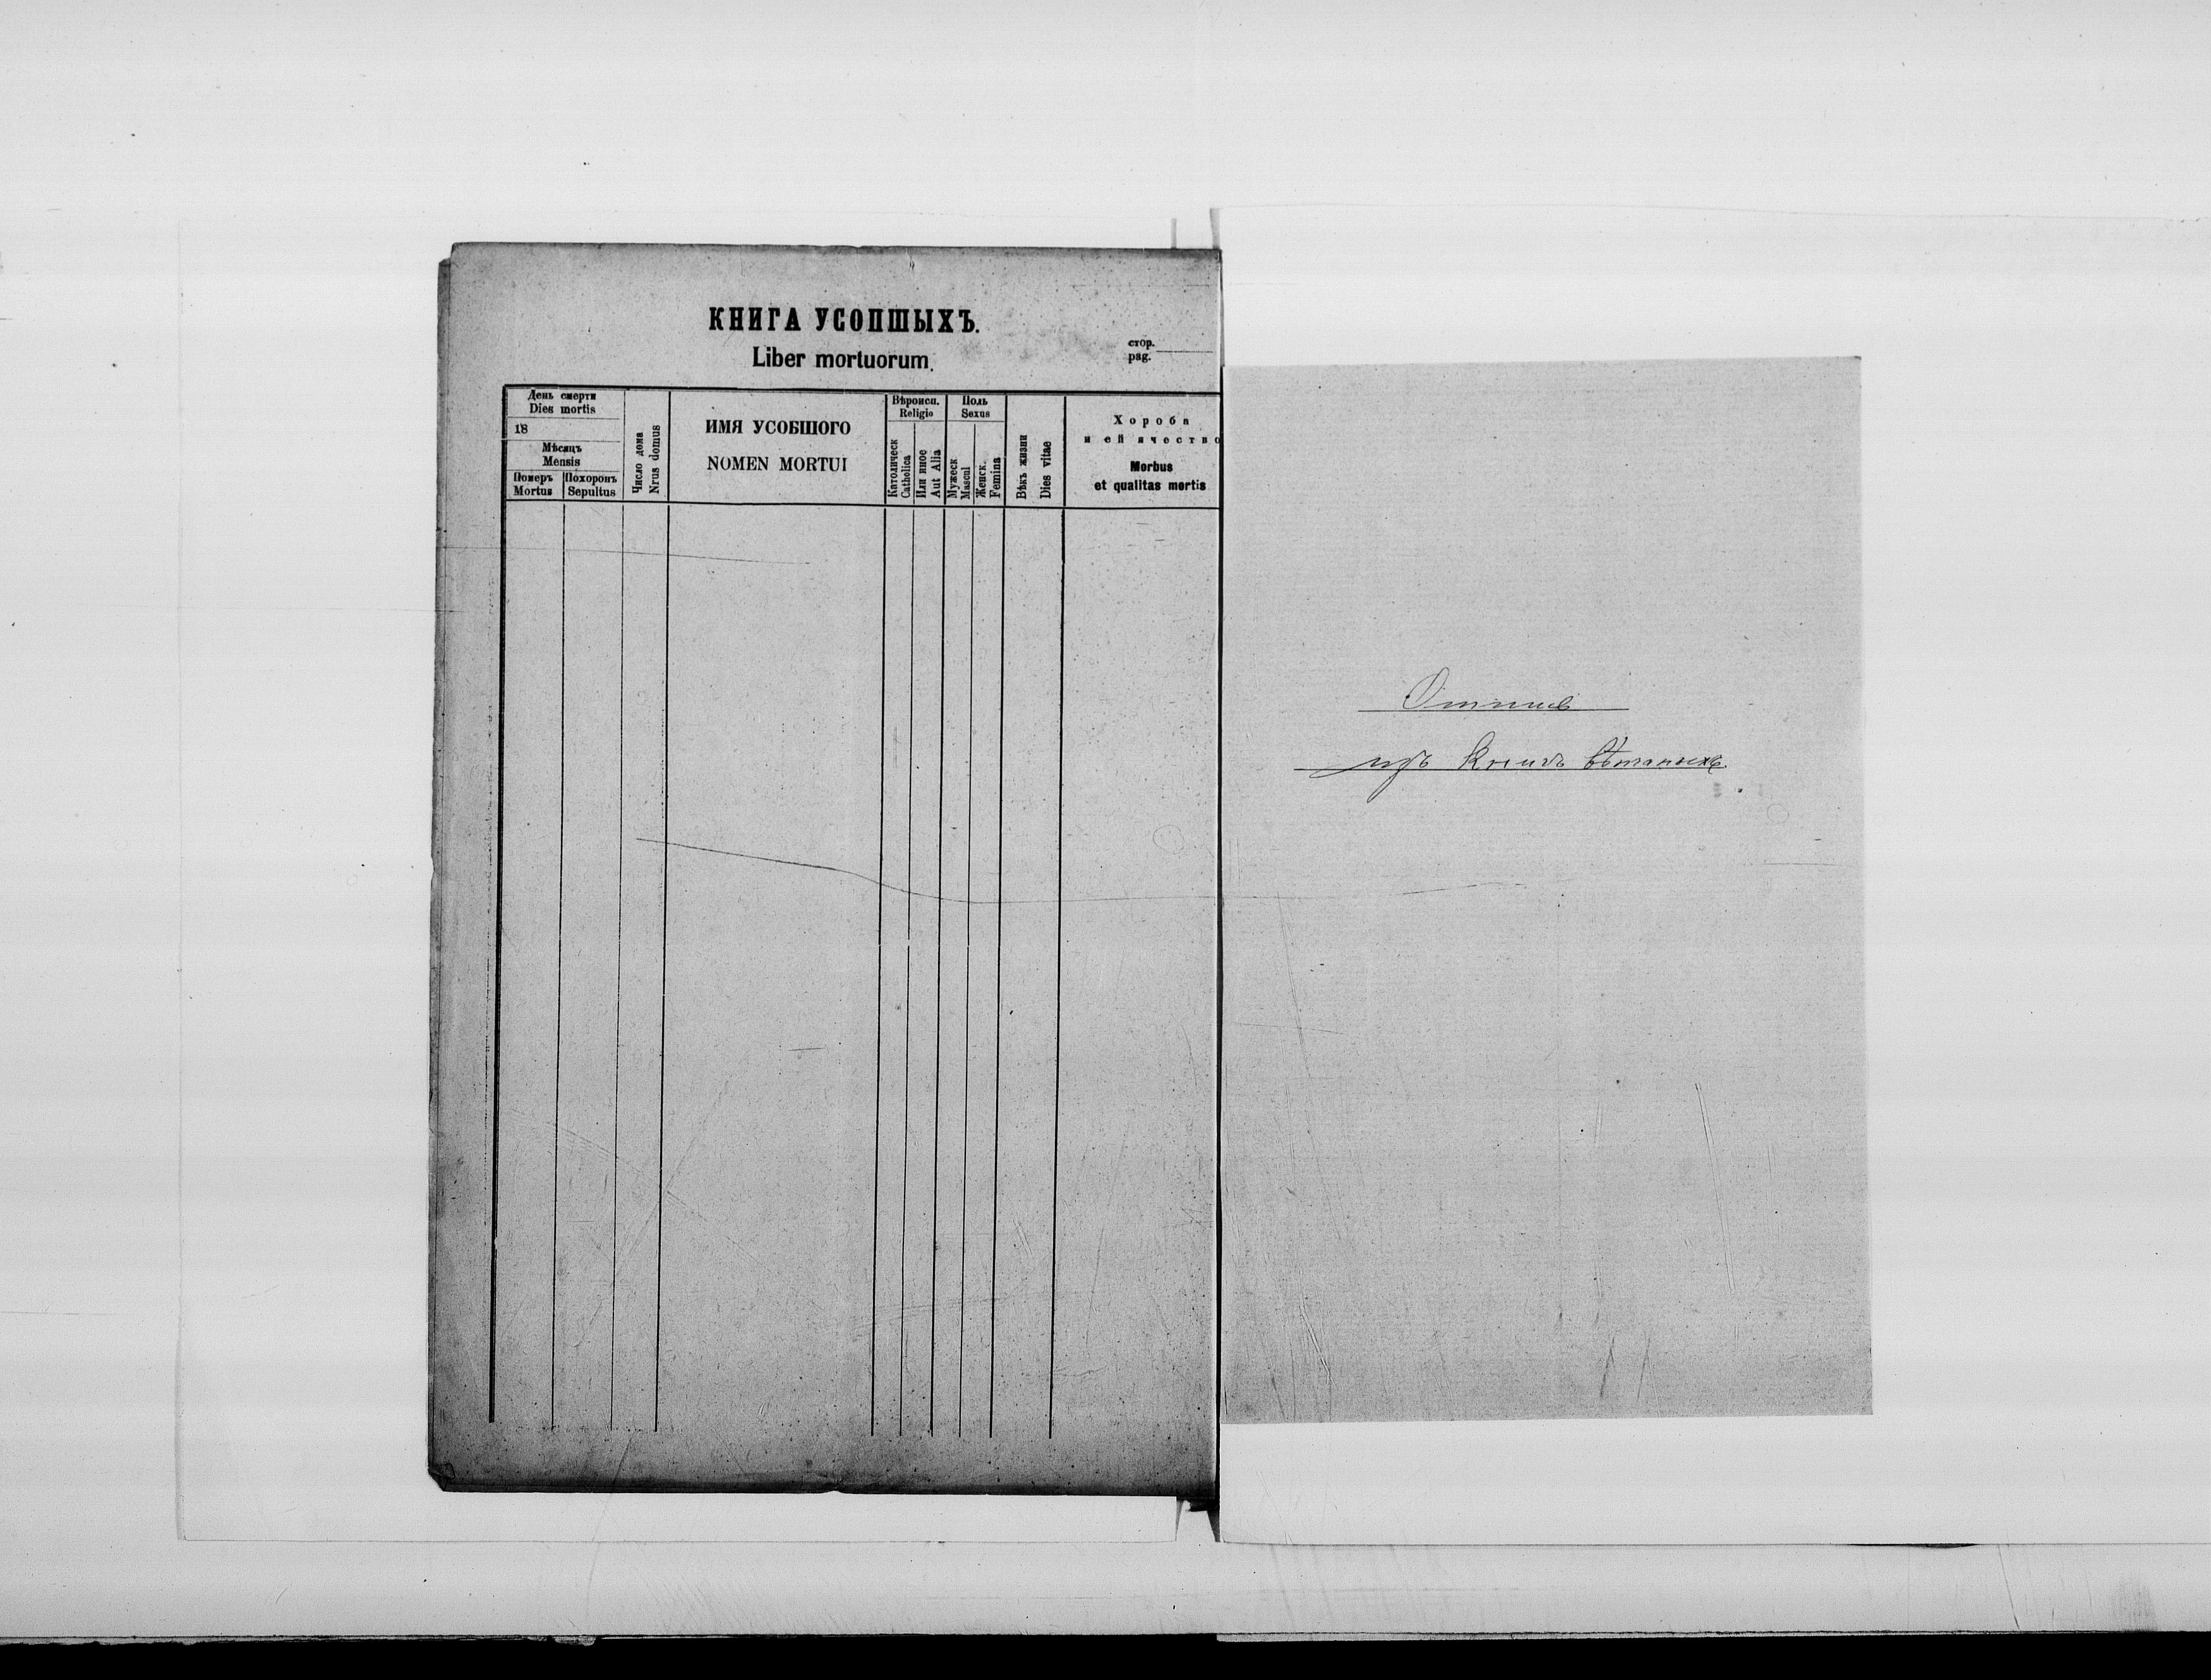 КНИГА УСОПШЫХЪ.
Liber mortuorum.
стор.
pag.
День смерти
Dies mortis
18
Мѣсяцъ
Mensis
Померъ
Mortus
Похоронъ
Sepultus
Число дома
Nrus domus
ИМЯ УСОБШОГО
NOMEN MORTUI
Вѣроисп.
Religio
Католическ
Catholica
Или иное
Aut Alia
Полъ
Sexus
Мужеск
Mascul
Женск.
Femina
Вѣкъ жизни
Dies vitae
Хороба
и ей ячество
Morbus
et qualitas mortis
Отпись
изъ Книгъ вѣнчаныхъ